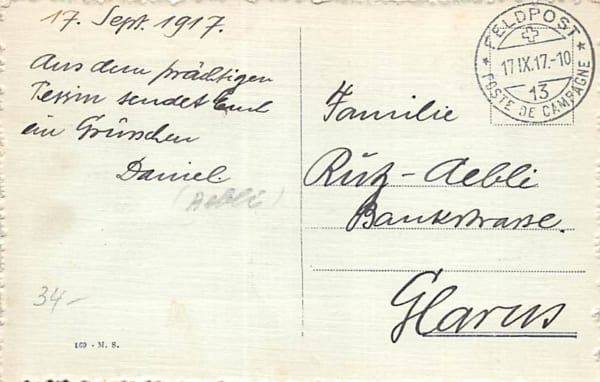 17. Sept. 1917.
Aus dem prächtigen
Tessin sendet Euch
ein Grüsschen
Daniel
(Aebli)
34-
169 - M. S.
* FELDPOST *
17 IX.17.-10
13
POSTE DE CAMPAGNE
Familie
Rütz-Aebli
Bankstrasse.
Glarus